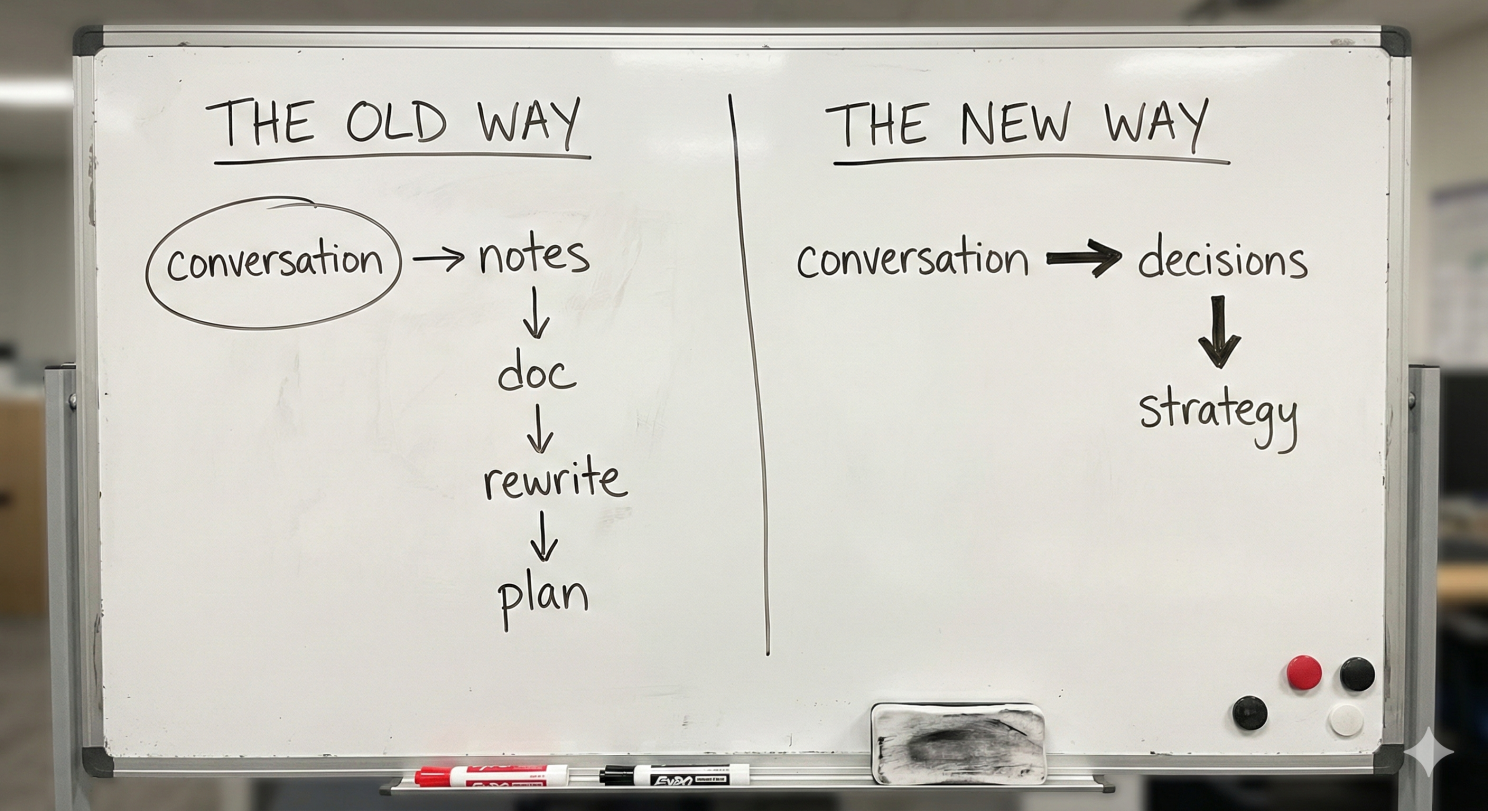 THE OLD WAY
conversation → notes
↓
doc
↓
rewrite
↓
plan
THE NEW WAY
conversation → decisions
↓
strategy
EXPO